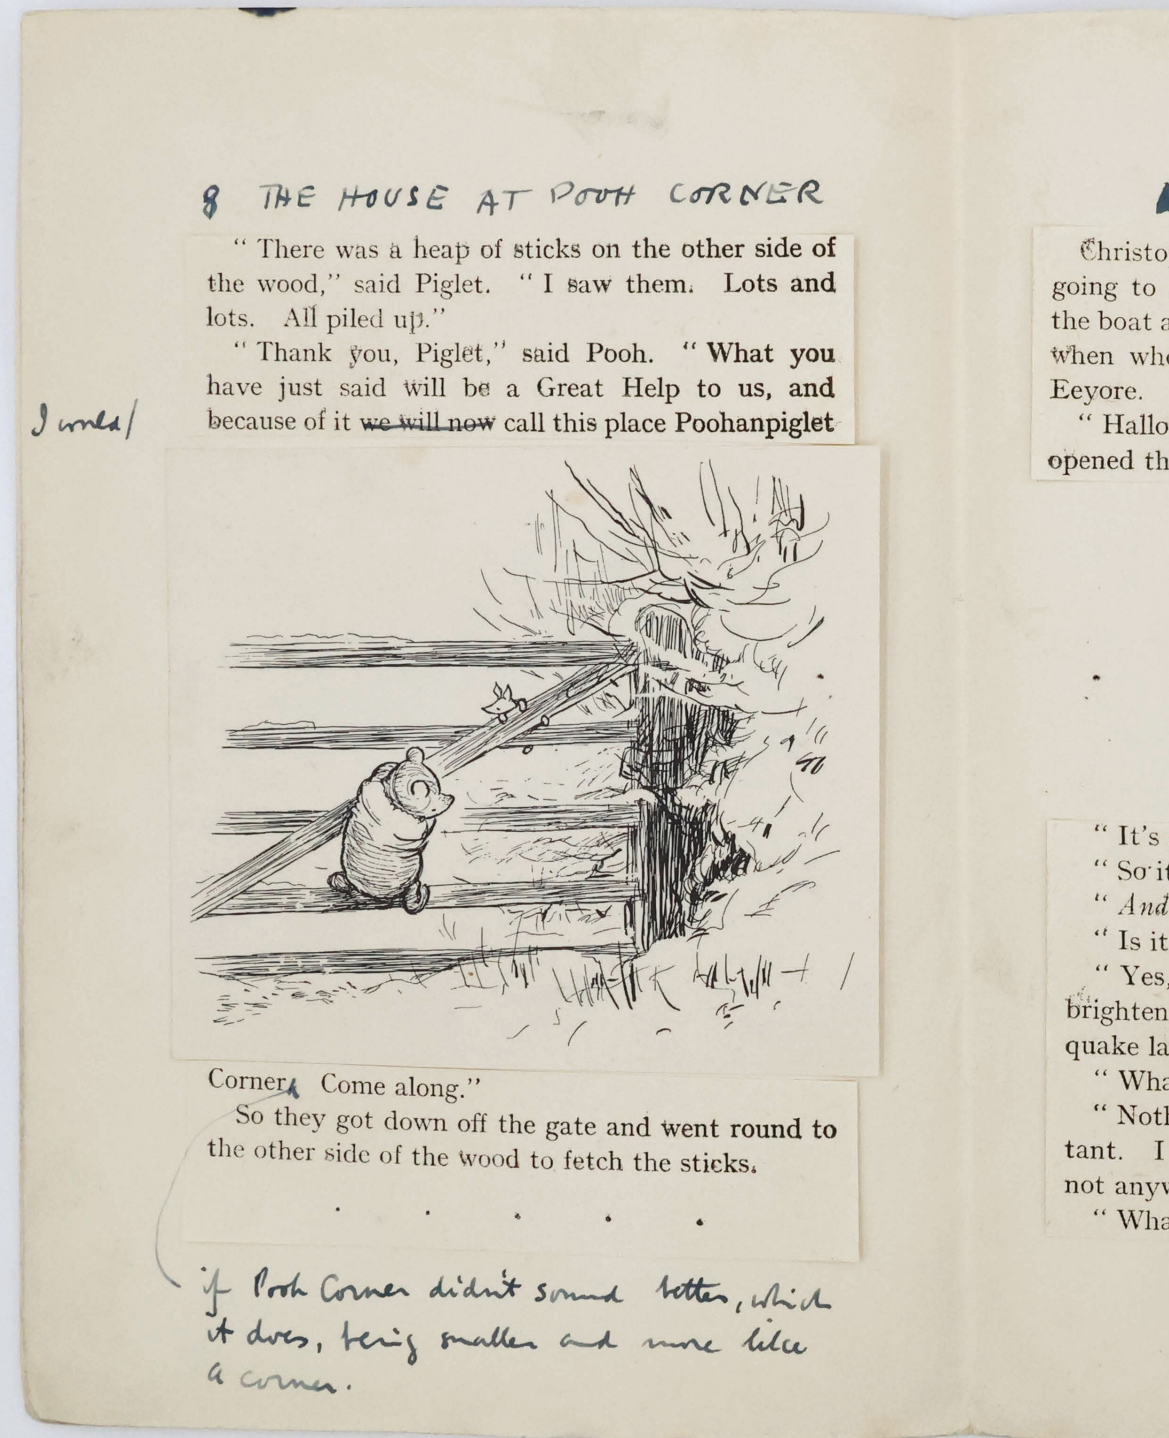 8 THE HOUSE AT POOH CORNER
“ There was a heap of sticks on the other side of
the wood,” said Piglet. “ I saw them. Lots and
lots. All piled up.”
“ Thank you, Piglet,” said Pooh. “ What you
have just said will be a Great Help to us, and
I could/
because of it we will now call this place Poohanpiglet
Corner Come along.”
So they got down off the gate and went round to
the other side of the wood to fetch the sticks.
. . . . .
if Pooh Corner didn't sound better, which
it does, being smaller and more like
a corner.
Christo
going to
the boat a
when who
Eeyore.
“ Hallo
opened th
“ It's
“ So it
“ And
“ Is it
“ Yes,
brighten
quake la
“ Wha
“ Noth
tant. I
not anyw
“ Wha